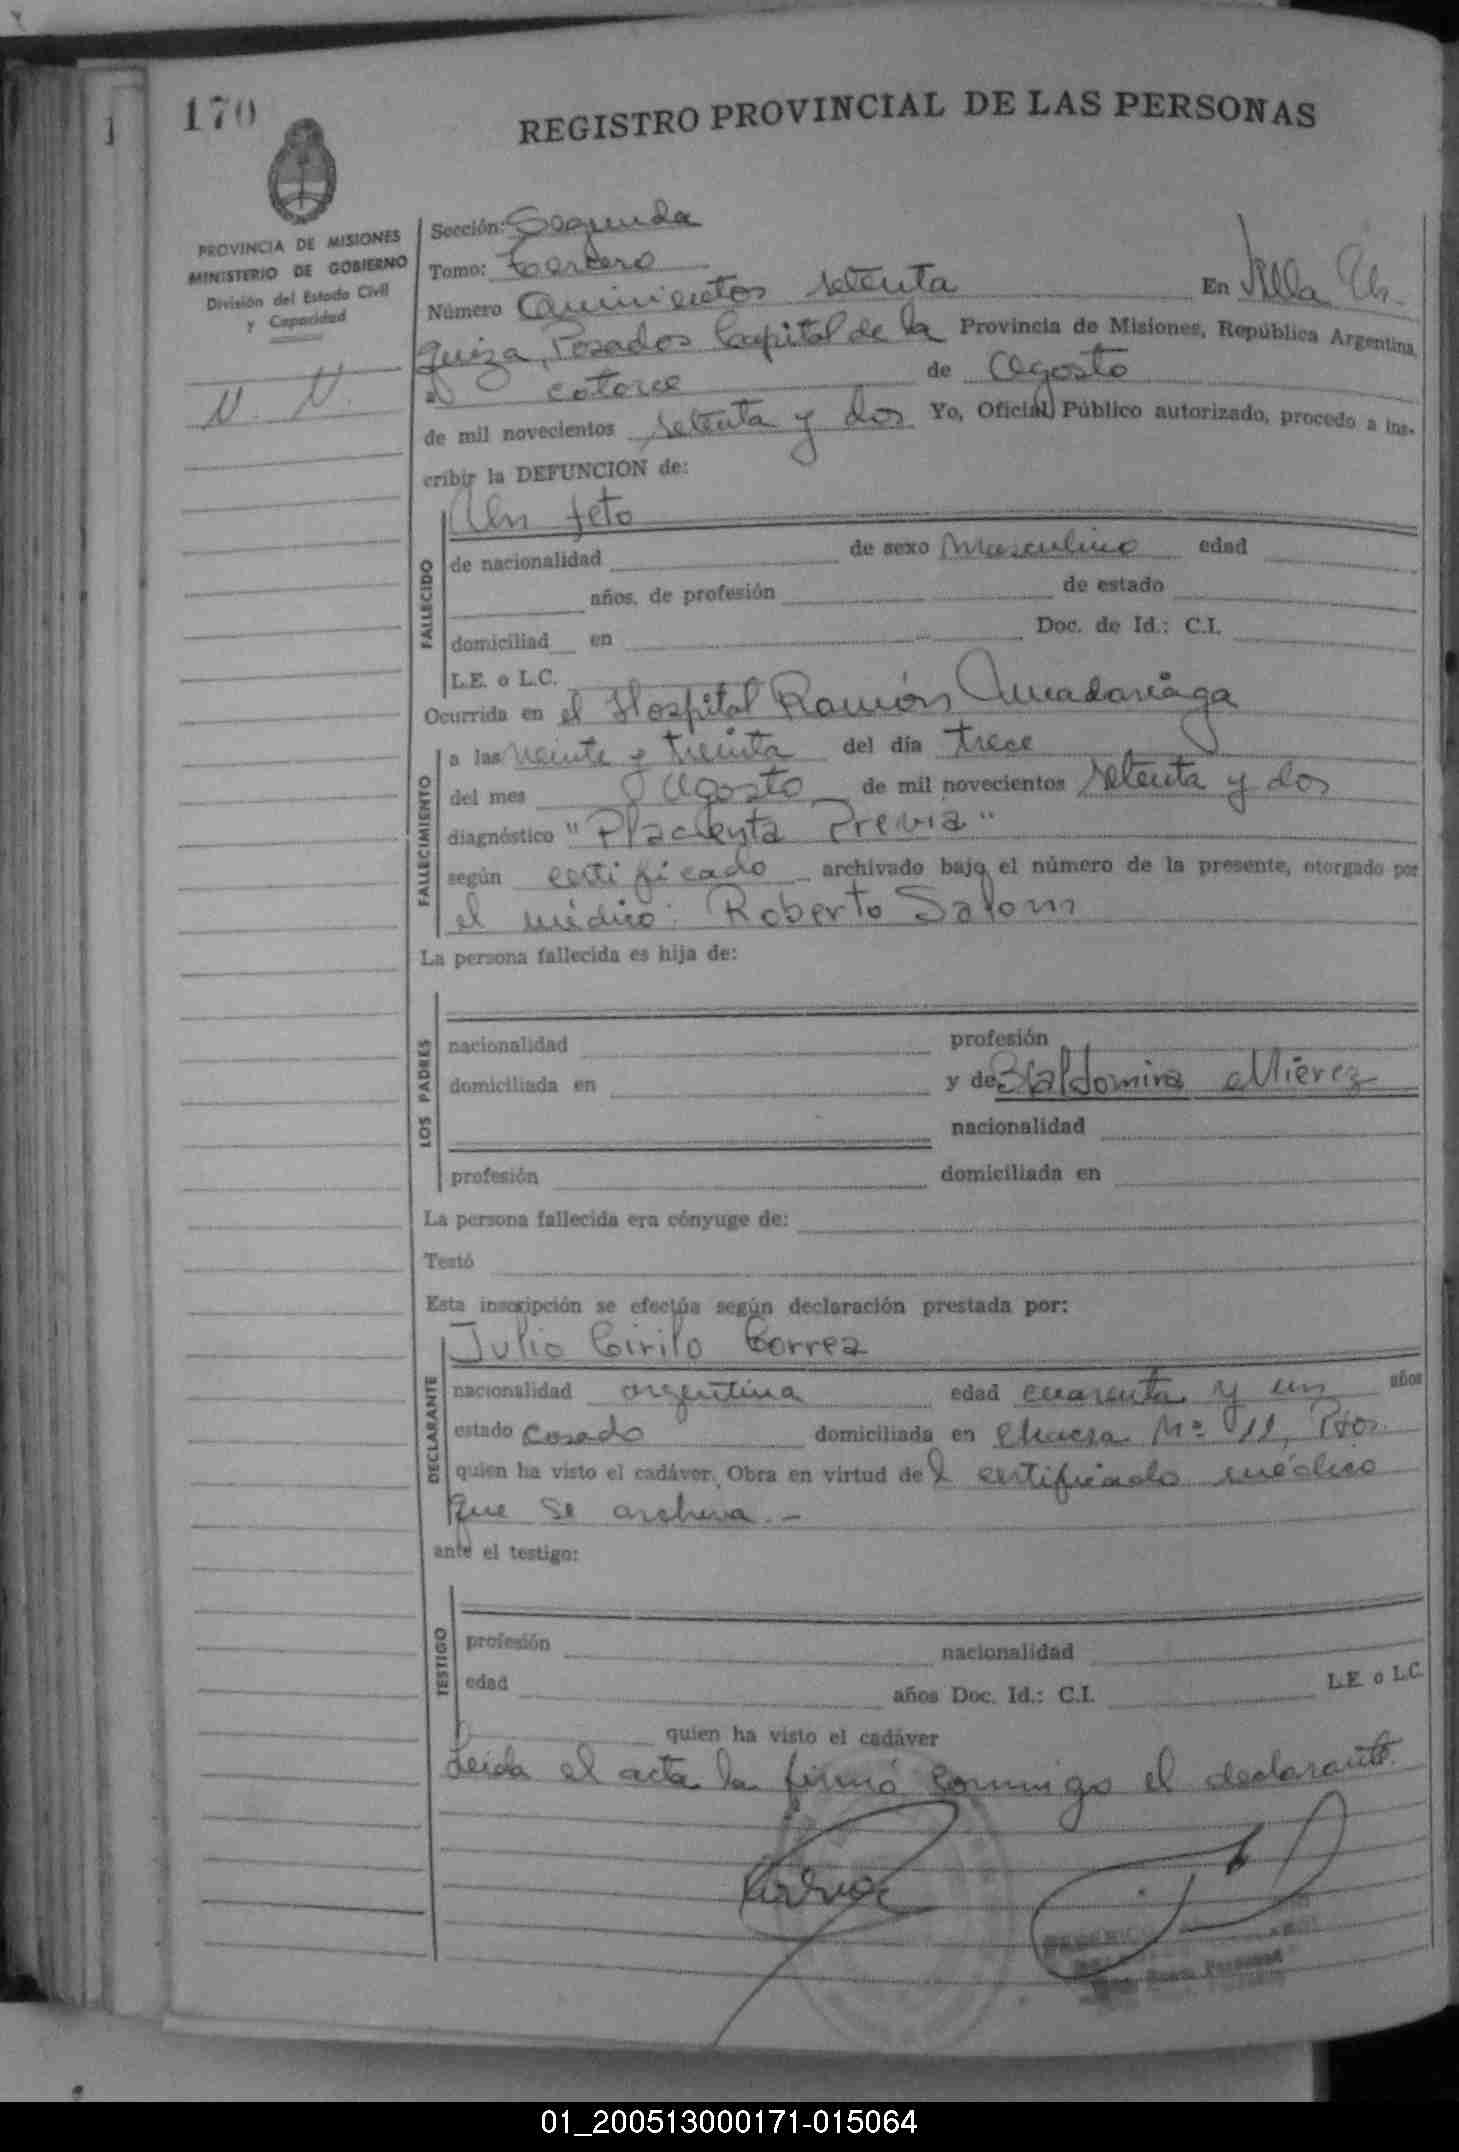 170
REGISTRO PROVINCIAL DE LAS PERSONAS
PROVINCIA DE MISIONES
MINISTERIO DE GOBIERNO
División del Estado Civil
y Capacidad
N. N.
Sección: Segunda
Tomo: Tercero
Número Quinientos setenta En Villa Ur-
quiza, Posadas Capital de la Provincia de Misiones, República Argentina,
a catorce de Agosto
de mil novecientos setenta y dos Yo, Oficial Público autorizado, procedo a ins-
cribir la DEFUNCION de:
FALLECIDO
Un feto
de nacionalidad de sexo Masculino edad
años, de profesión de estado
domiciliad en Doc. de Id.: C.I.
L.E. o L.C.
Ocurrida en el Hospital Ramón Madariaga
FALLECIMIENTO
a las veinte y treinta del día trece
del mes Agosto de mil novecientos setenta y dos
diagnóstico "Placenta Previa"
según certificado archivado bajo el número de la presente, otorgado por
el médico: Roberto Salom
La persona fallecida es hija de:
LOS PADRES
nacionalidad profesión
domiciliada en y de Baldomira Mierez
nacionalidad
profesión domiciliada en
La persona fallecida era cónyuge de:
Testó
Esta inscripción se efectúa según declaración prestada por:
DECLARANTE
Julio Cirilo Correa
nacionalidad argentina edad cuarenta y un años
estado casado domiciliada en Chacra Nº 11, Pdas.
quien ha visto el cadáver. Obra en virtud del certificado médico
que se archiva.-
ante el testigo:
TESTIGO
profesión nacionalidad
edad años Doc. Id.: C.I. L.E. o L.C.
quien ha visto el cadáver
Leída el acta la firmó conmigo el declarante.
01_200513000171-015064